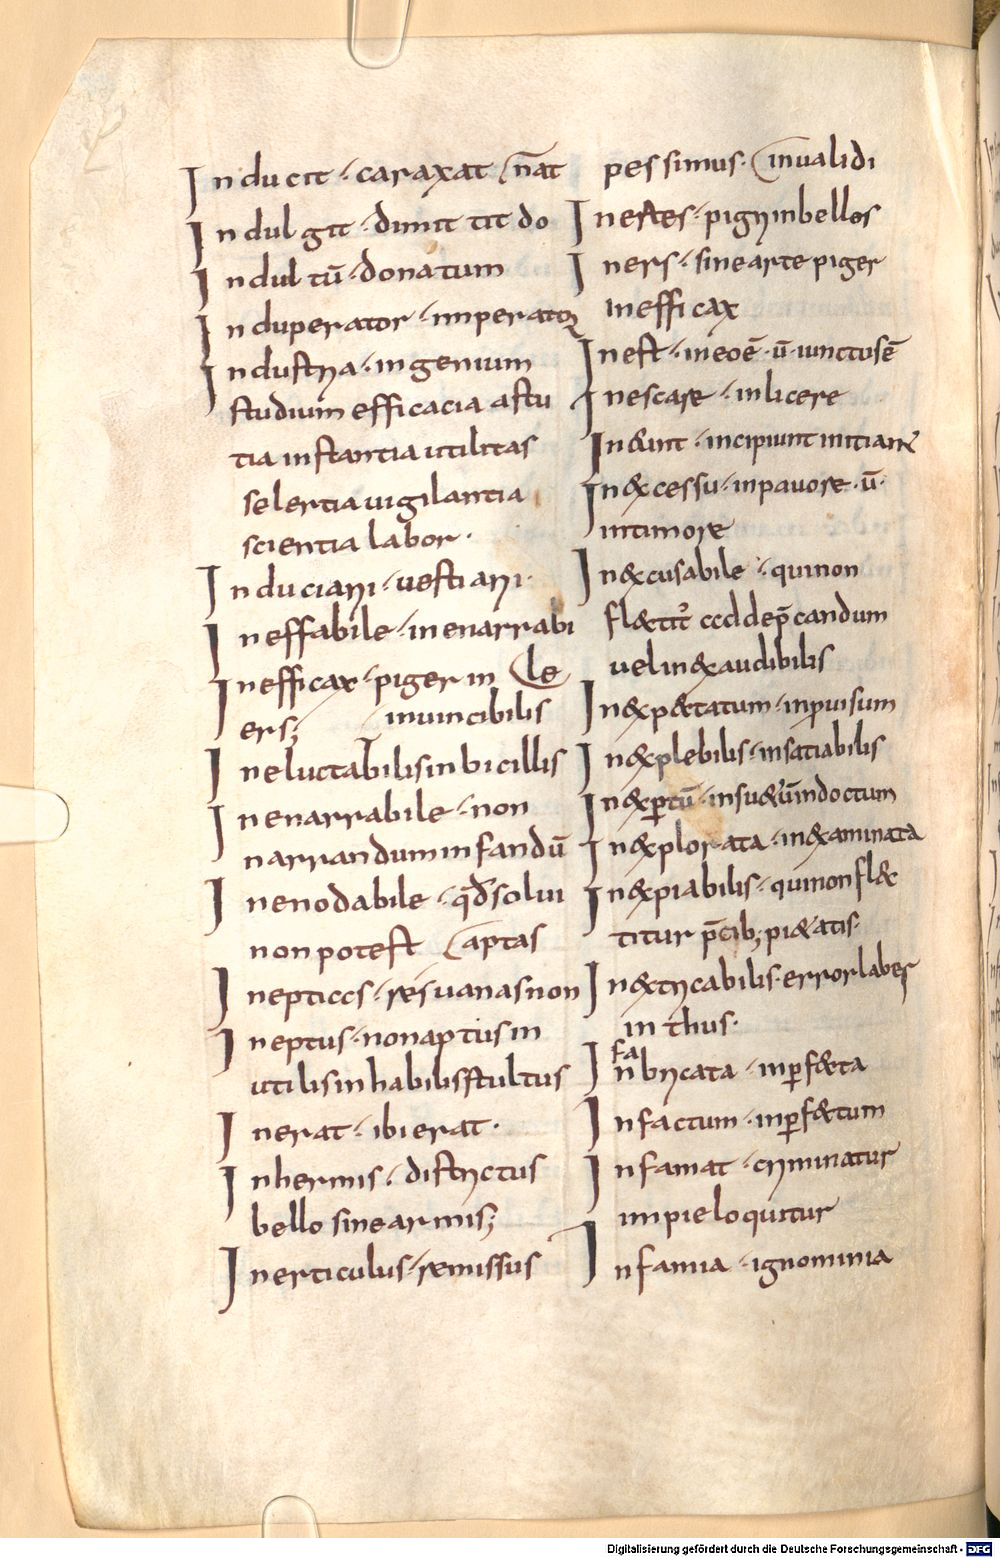 Inducit · caraxat (n̄at
Indulgit · dimittit do
Indultū · donatum
Induperator · imperator
Industria · ingenium
studium efficacia astu
tia instantia utilitas
selertia uigilantia
scientia labor ·
Induciari · uestiari ·
Ineffabile · inenarrabi
Inefficax · piger in (le
ers; · inuincibilis
Ineluctabilis inbicillis
Inenarrabile · non
narrandum infandū
Inenodabile · qđ solui
non potest (aptas
Inepticcs · res uanas non
Ineptus · non aptus in
utilis inhabilis stultus
Inerat · ibi erat ·
Inhermis · districtus
bello sine armis;
Inerticulus · remissus
pessimus · (inualidi
Inertes · pigri inbelles
Iners · sine arte piger
inefficax
Inest · ineoē · ū · iunctus ē
Inescare · inlicere
In&unt · incipiunt initiant
In&cessu · inpauore · ū ·
intimore
In&cusabile · qui non
fl&tit᷒ ccd dep̄candum
uel in&audibilis
In&p&tatum · inprouisum
In&plebilis · insatiabilis
In&ꝑtū · insu&ū indoctum
In&plorata · in&aminata
In&piabilis · qui non fl&
titur p̄cib; pi&atis ·
In&tricabilis · error labes
in thus ·
fa
Inbricata · inꝑf&ta
Infactum · inꝑf&tum
Infamat · criminatur
impie loquitur
Infamia · ignominia
Digitalisierung gefördert durch die Deutsche Forschungsgemeinschaft - DFG